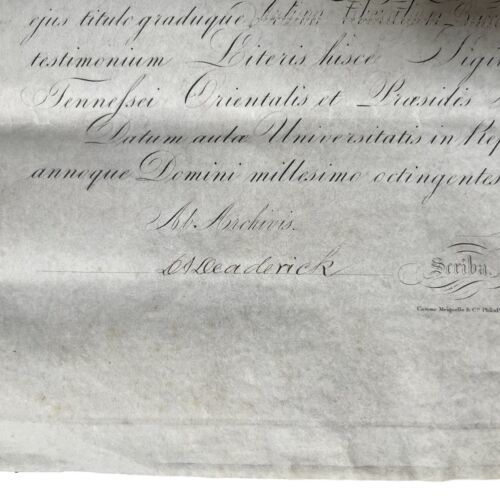 ejus titulo graduque
testimonium Literis hisce Sigi
Tennessei Orientalis et Præsidis
Datum aulæ Universitatis in Rep
annoque Domini millesimo octingentes
Ab Archivis.
D A Deaderick
Scriba.
& Co. Philad